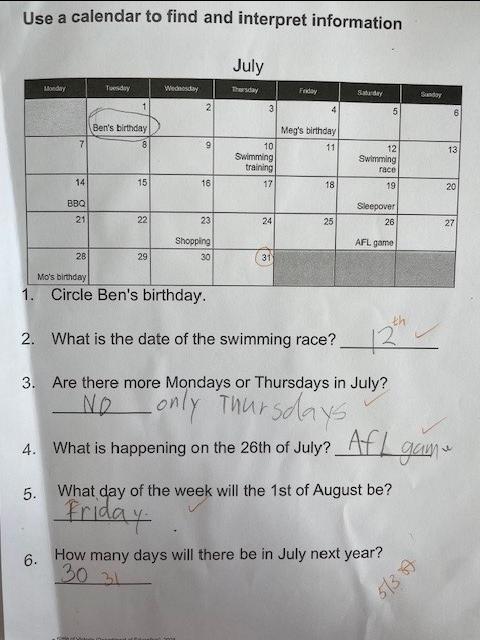 Use a calendar to find and interpret information
July
Monday Tuesday Wednesday Thursday Friday Saturday Sunday
1 2 3 4 5 6
Ben's birthday Meg's birthday
7 8 9 10 11 12 13
Swimming training Swimming race
14 15 16 17 18 19 20
BBQ Sleepover
21 22 23 24 25 26 27
Shopping AFL game
28 29 30 31
Mo's birthday
1. Circle Ben's birthday.
2. What is the date of the swimming race? 12th
3. Are there more Mondays or Thursdays in July?
NO only Thursdays
4. What is happening on the 26th of July? AfL game
5. What day of the week will the 1st of August be?
Friday.
6. How many days will there be in July next year?
30 31